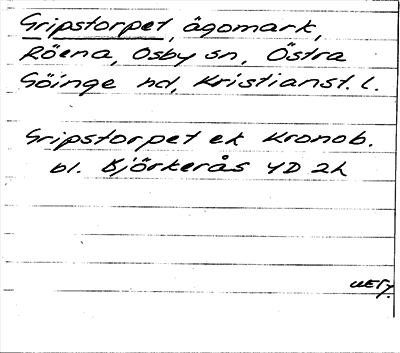 Gripstorpet, ägomark,
Röena, Osby sn, Östra
Göinge hd, Kristianst. l.
Gripstorpet ek Kronob.
bl. Björkerås 4D 2h